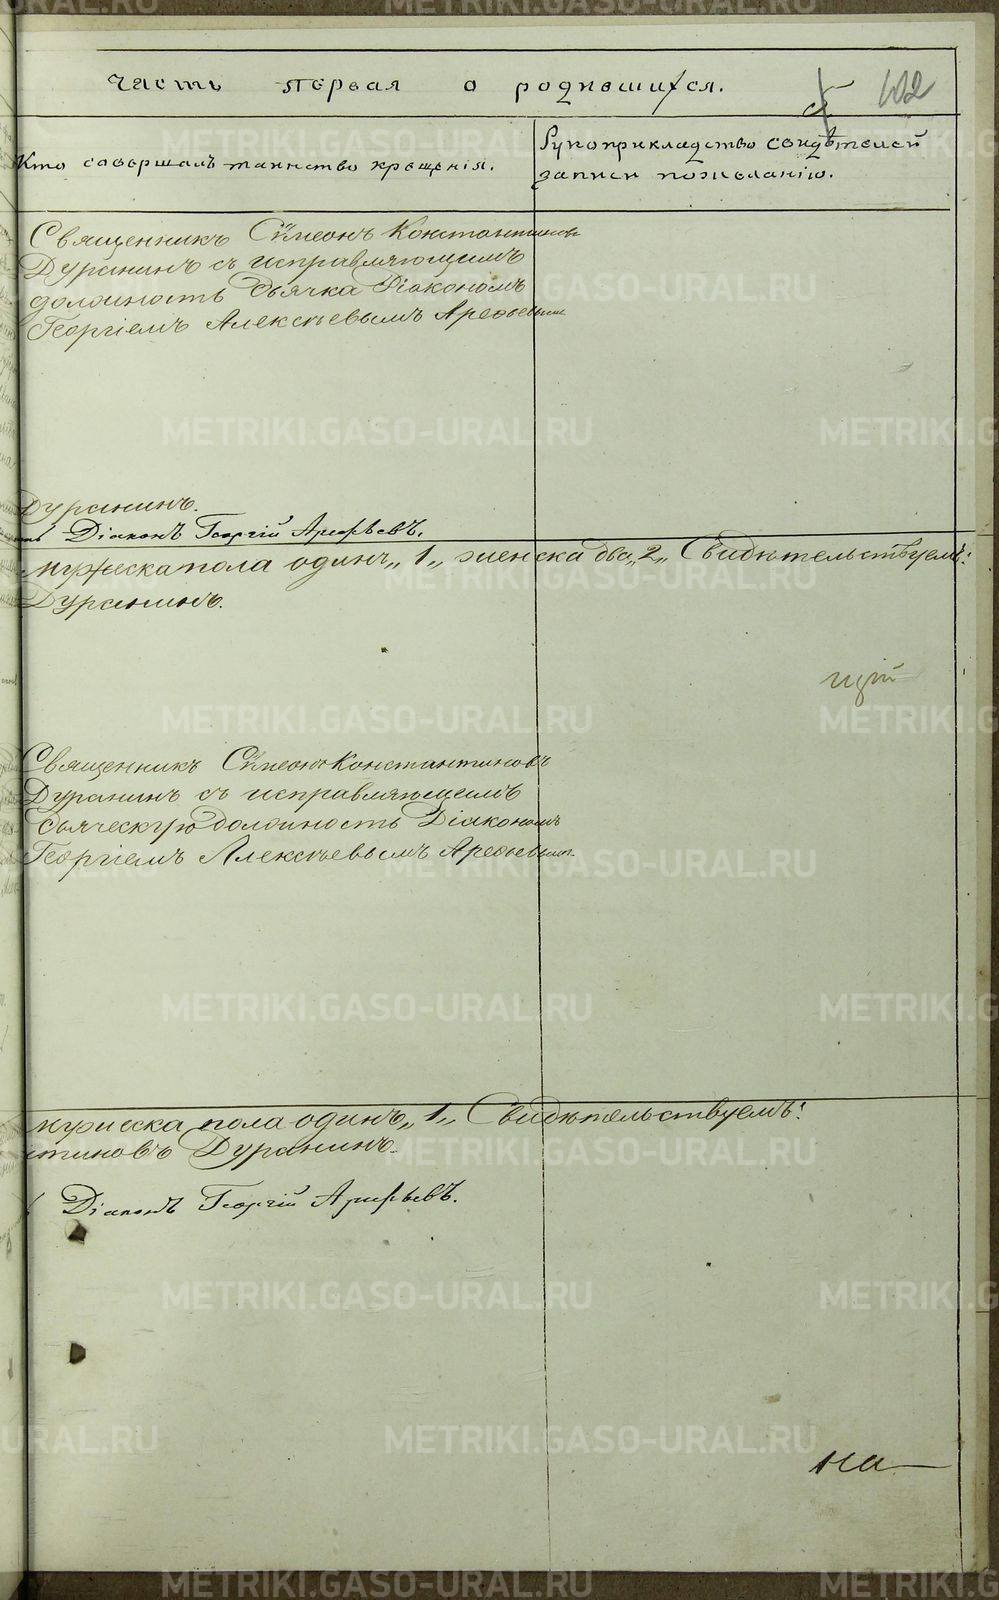 часть первая о родившихся.
5 602
Кто совершалъ таинство крещенія.
Рукоприкладство свидѣтелей
записи по желанію.
Священникъ Сѵмеонъ Константиновъ
Дуранинъ съ исправляющимъ
должность дьячка Діакономъ
Георгіемъ Алексѣевымъ Арефьевымъ
Дуранинъ.
Діаконъ Георгій Арефьевъ.
мужеска пола одинъ „1„ женска два „2„ Свидѣтельствуемъ:
Дуранинъ.
щій
Священникъ Сѵмеонъ Константиновъ
Дуранинъ съ исправляющимъ
дьяческую должность Діакономъ
Георгіемъ Алексѣевымъ Арефьевымъ
мужеска пола одинъ „1„ Свидѣтельствуемъ:
стиновъ Дуранинъ.
Діаконъ Георгій Арефьевъ.
на
METRIKI.GASO-URAL.RU